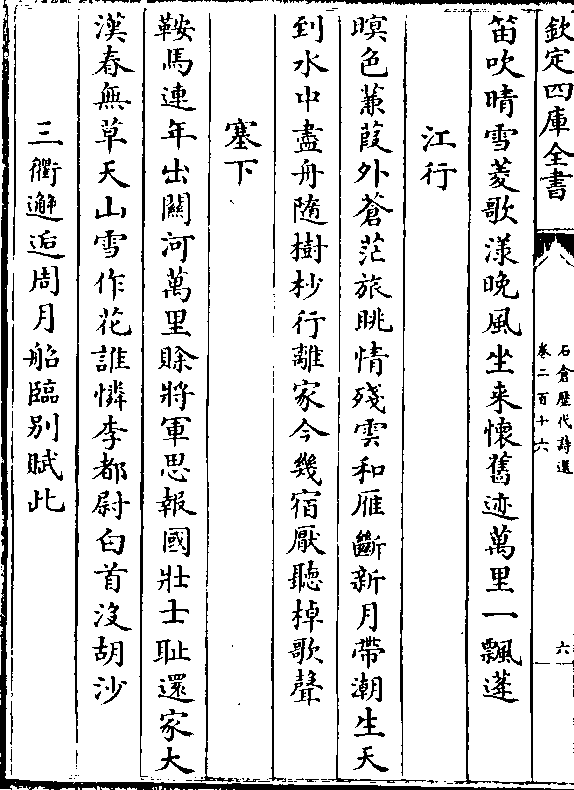 欽定四庫全書
石倉歴代詩選
卷二百十六
六
笛吹晴雪菱歌漾晚風坐来懷舊迹萬里一飄蓬
江行
暝色蒹葭外蒼茫旅眺情殘雲和雁斷新月帶潮生天
到水中盡舟隨樹杪行離家今幾宿厭聽棹歌聲
塞下
鞍馬連年出關河萬里賖將軍思報國壯士耻還家大
漢春無草天山雪作花誰憐李都尉白首没胡沙
三衢邂逅周月船臨别賦此